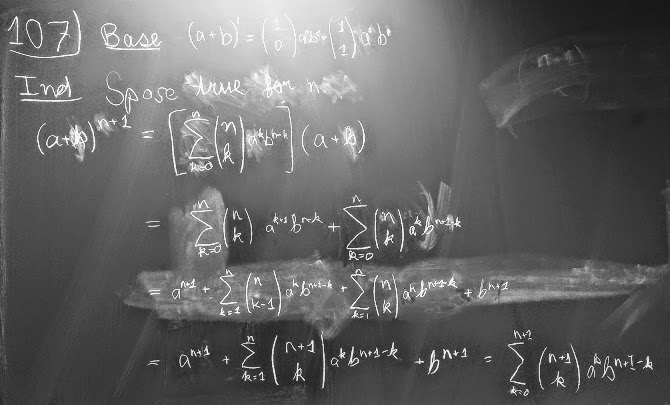 107) Base (a+b)^1 = \binom{1}{0} a^0 b^1 + \binom{1}{1} a^1 b^0
Ind Spose true for n
(a+b)^{n+1} = \left[ \sum_{k=0}^{n} \binom{n}{k} a^k b^{n-k} \right] (a+b)
= \sum_{k=0}^{n} \binom{n}{k} a^{k+1} b^{n-k} + \sum_{k=0}^{n} \binom{n}{k} a^k b^{n+1-k}
= a^{n+1} + \sum_{k=1}^{n} \binom{n}{k-1} a^k b^{n+1-k} + \sum_{k=1}^{n} \binom{n}{k} a^k b^{n+1-k} + b^{n+1}
= a^{n+1} + \sum_{k=1}^{n} \binom{n+1}{k} a^k b^{n+1-k} + b^{n+1} = \sum_{k=0}^{n+1} \binom{n+1}{k} a^k b^{n+1-k}